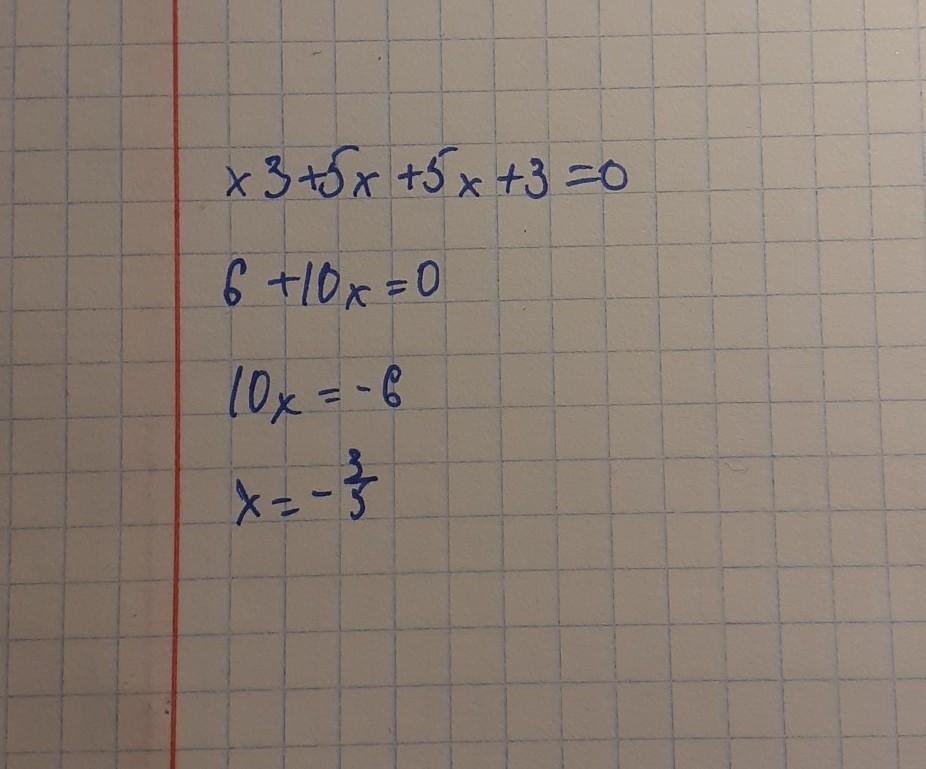 x3+5x+5x+3=0
6+10x=0
10x=-6
x=-3/5